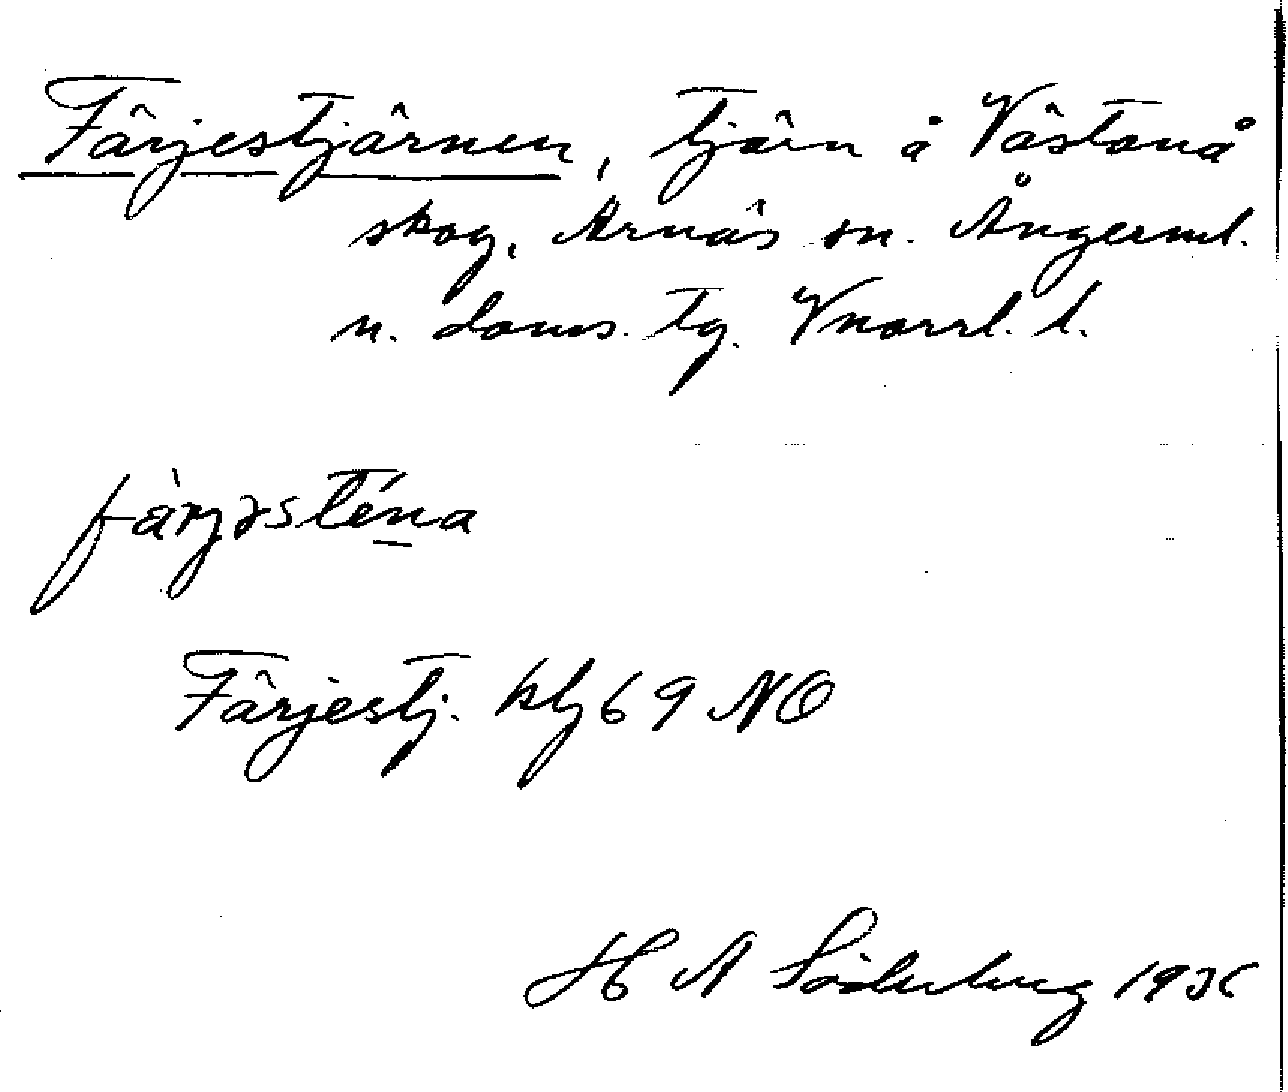 Färjestjärnen, tjärn å Västanå
skog, Arnäs sn. Ångerml.
n. doms. tg. Vnorrl. l.
färjəsténa
Färjestj. kbl 69 NO
H A Söderberg 1936